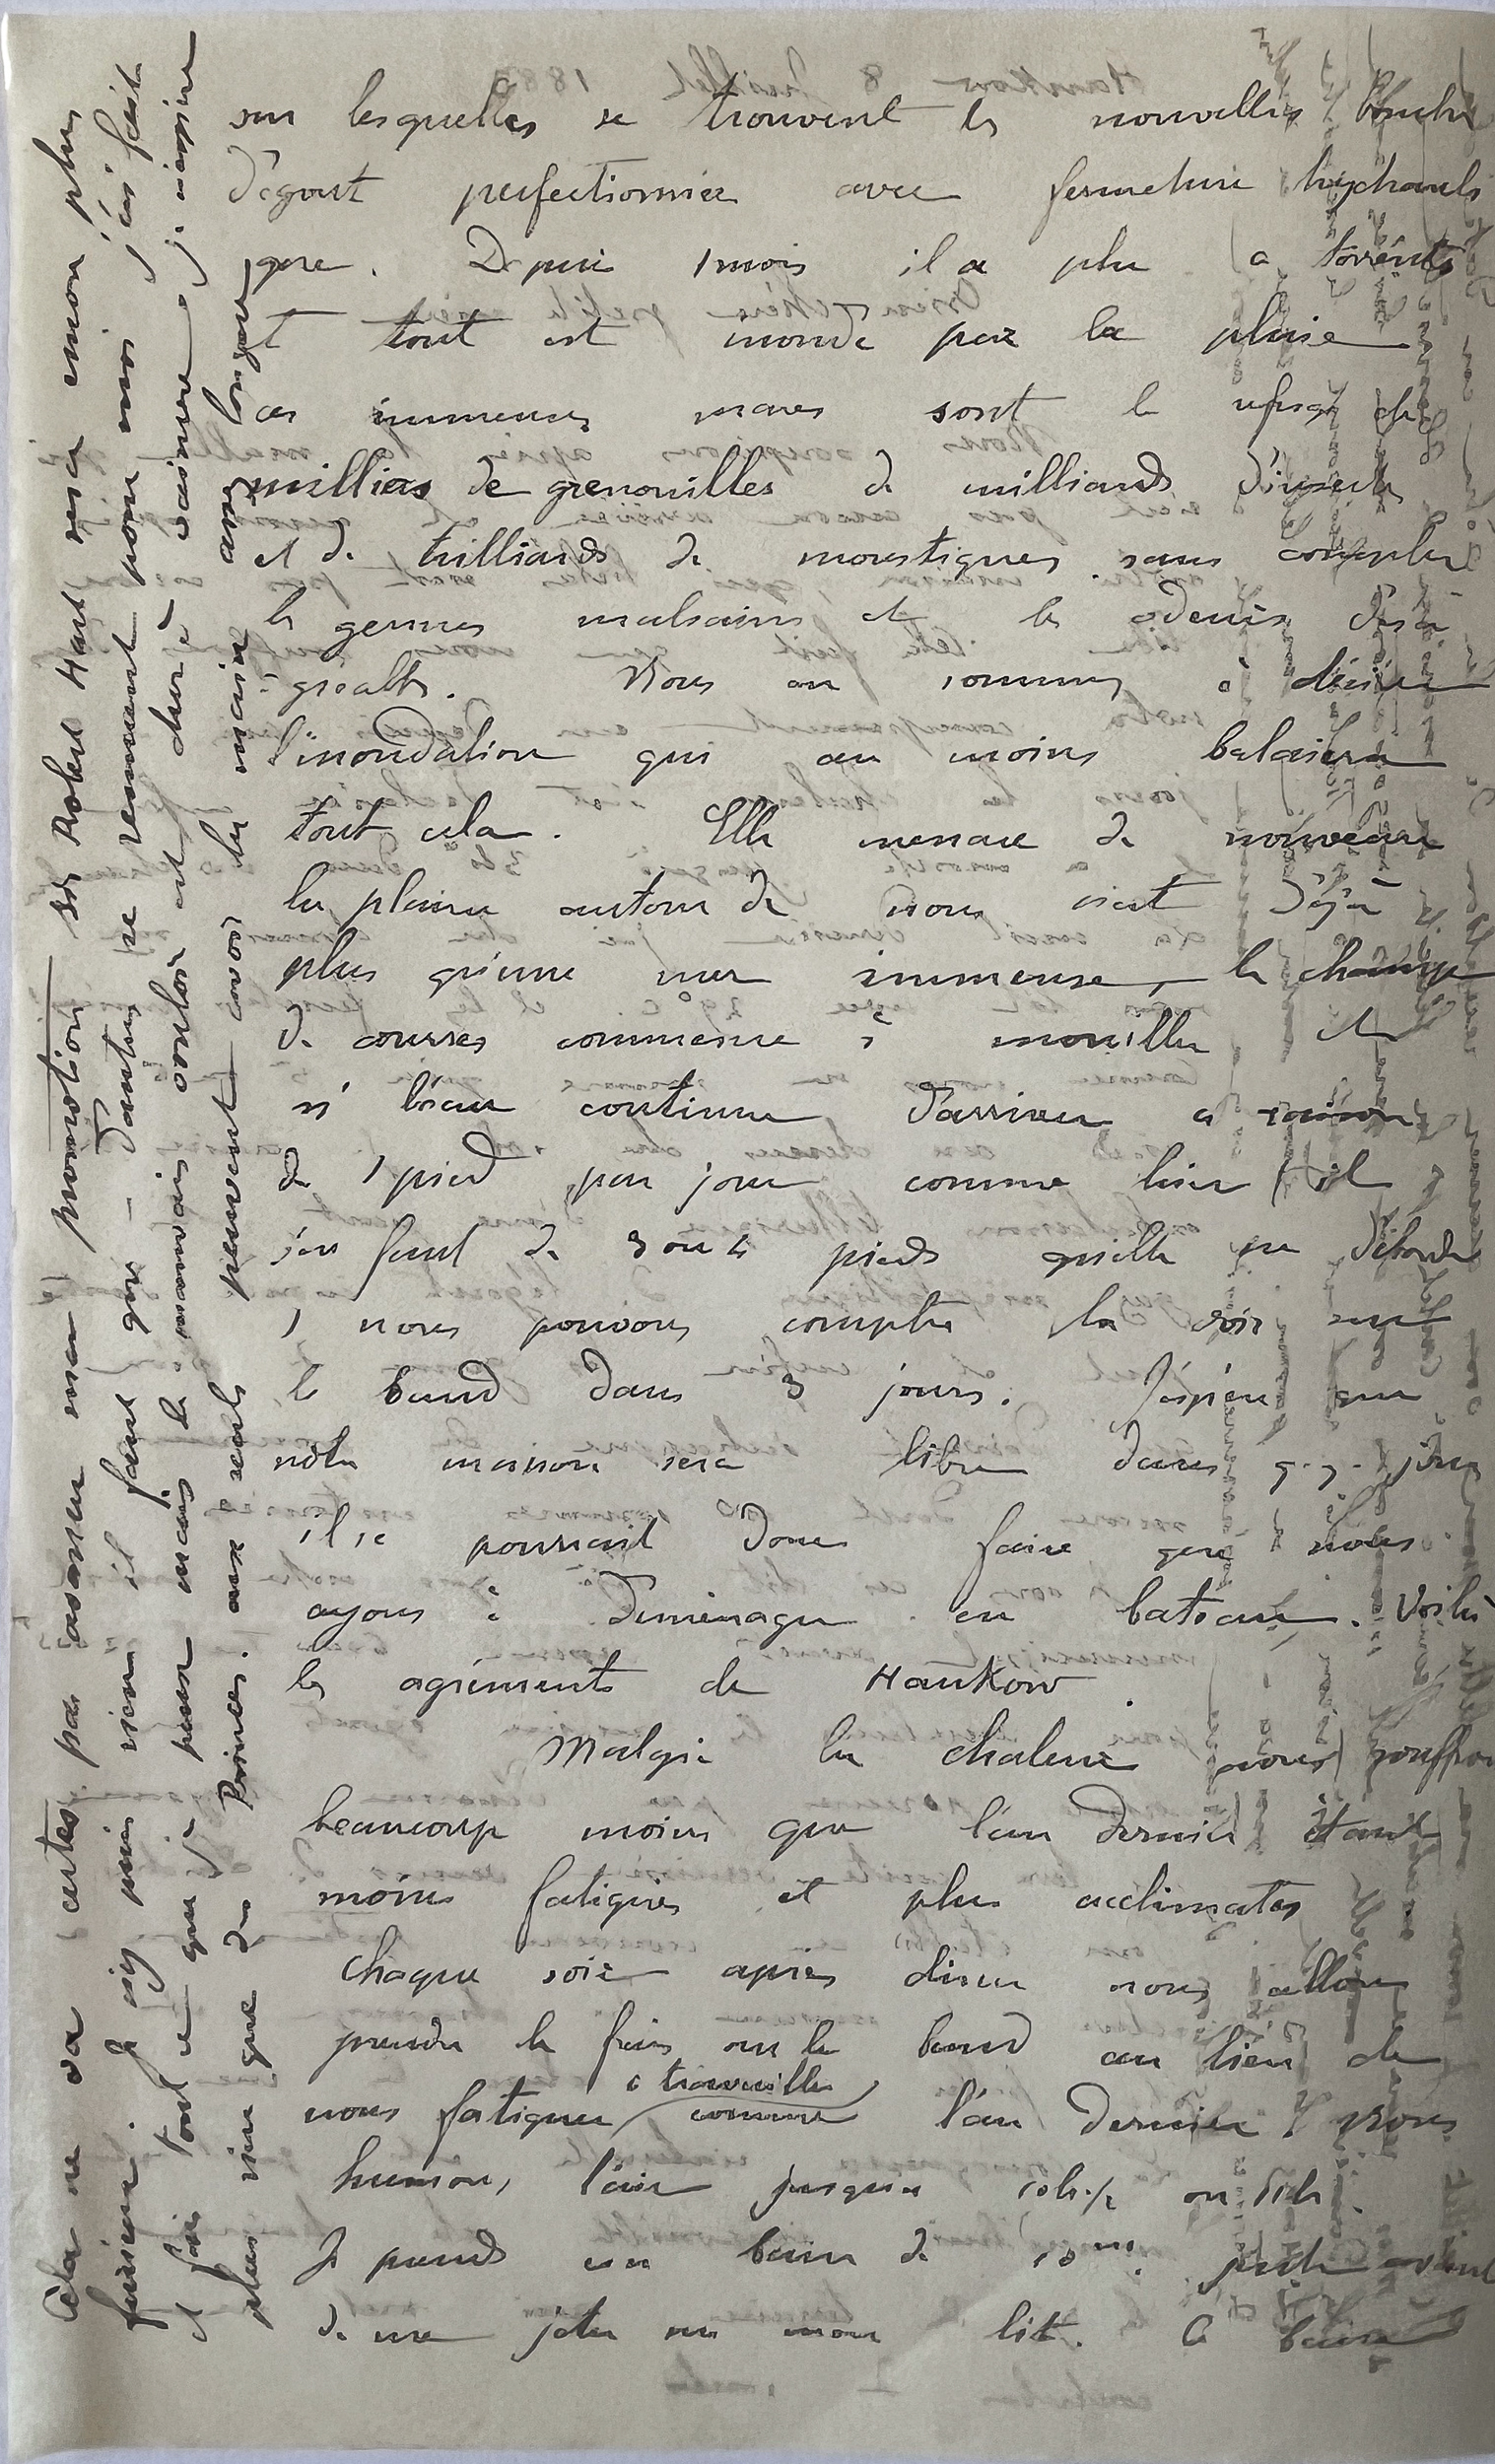 sur lesquelles se trouvent les nouvelles bouches
d'égout perfectionnées avec fermeture hydrauli
que. Depuis 1 mois il a plu a torrents
et tout est inondé par la pluie
ces immenses mares sont le refuge de
milliers de grenouilles de milliards d'insectes
et de trilliards de moustiques sans compter
les germes malsains et les odeurs désa
gréables. Nous en sommes à désirer
l'inondation qui au moins balaiera
tout cela. Elle menace de nouveau
la plaine autour de nous n'est déjà
plus qu'une mer immense, le champ
de courses commence à mouiller et
si l'eau continue d'arriver a raison
de 1 pied par jour comme hier (il
s'en faut de 3 ou 4 pieds qu'elle ne déborde
) nous pouvons compter la voir sur
le bund dans 3 jours. J'espère que
notre maison sera libre dans q.q. jours
il se pourrait donc faire que nous
ayons à déménager en bateau. Voilà
les agréments de Hankow.
Malgré la chaleur nous souffrons
beaucoup moins que l'an dernier étant
moins fatigués et plus acclimatés
chaque soir après diner nous allons
prendre le frais sur le bund au lieu de
nous fatiguer à travailler comme l'an dernier & nous
humons l'air jusqu'a 10h ½ ou 11h.
Je prends un bain de 10 m. juste avant
de me jeter sur mon lit. Ce bain
Cela ne va certes pas assurer mon promotion Sir Robert Hart sera encore plus
furieux. Je n'y puis rien il faut que d'autres se remuent pour moi j'ai fait
et fais tout ce que je peux mais le mauvais vouloir est dur à vaincre, je n'espère
plus rien que des Princes. aux seuls peuvent avoir la main assez longue